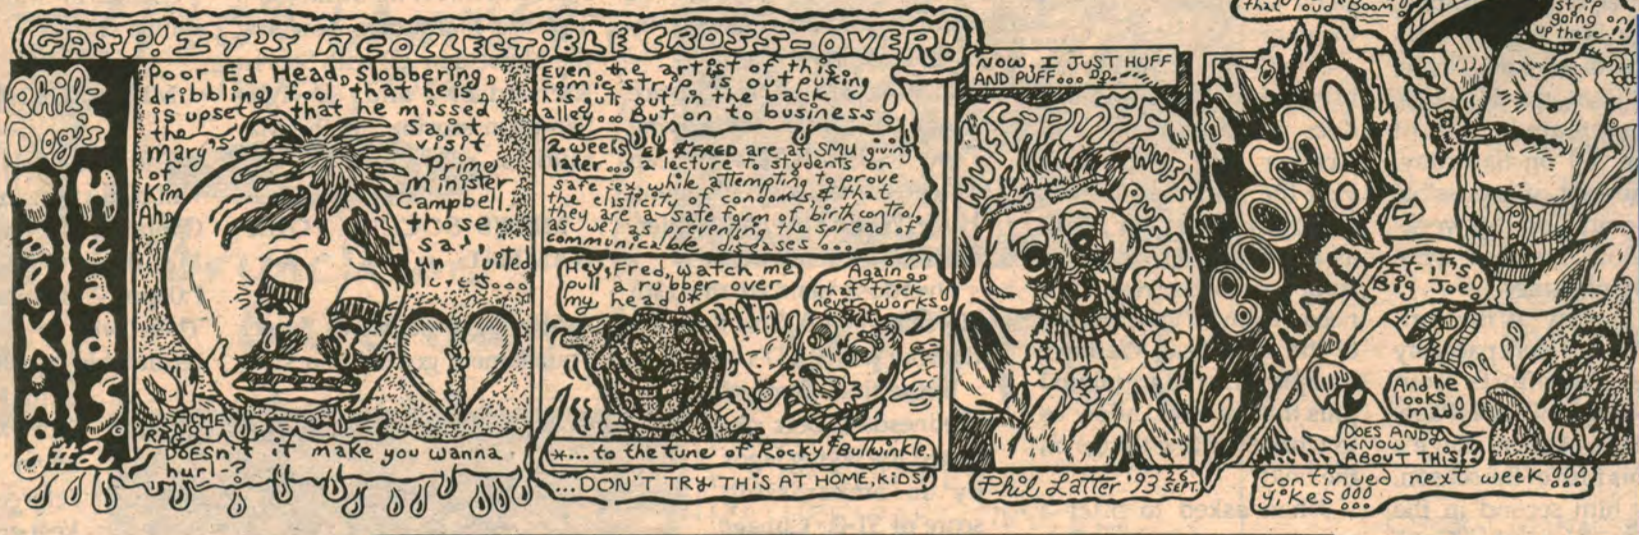 GASP! IT'S A COLLECTIBLE CROSS-OVER!
Phil-
Dog's
Talking
Heads.
#2
Poor Ed Head, slobbering,
dribbling fool that he is,
is upset that he missed
the Saint
Mary's visit
of Prime
Kim Minister
Aha Campbell.
those
sad,
lives...
ACME
NOSE
RAG
Doesn't it make you wanna
hurl-?
Even the artist of this
comic strip is out puking
his guts out in the back
alley... But on to business!
2 weeks
later...
ED & FRED are at SMU giving
a lecture to students on
safe sex, while attempting to prove
the elisticity of condoms, & that
they are a safe form of birth control,
as wel as prevening the spread of
communicable diseases...
Hey, Fred, watch me
pull a rubber over
my head!*
Again?!
That trick
never works!
*... to the tune of Rocky & Bullwinkle.
...DON'T TRY THIS AT HOME, KIDS!
NOW, I JUST HUFF
AND PUFF...
HUFF-PUFF
HUFF
PUFF
Phil Latter '93 26
SEPT.
BOOM!
that loud "Boom"!
strip
going on
up there!!
It-it's
Big Joe!
And he
looks
mad!
DOES ANDY
KNOW
ABOUT THIS!
Continued next week!!!
yikes!!!